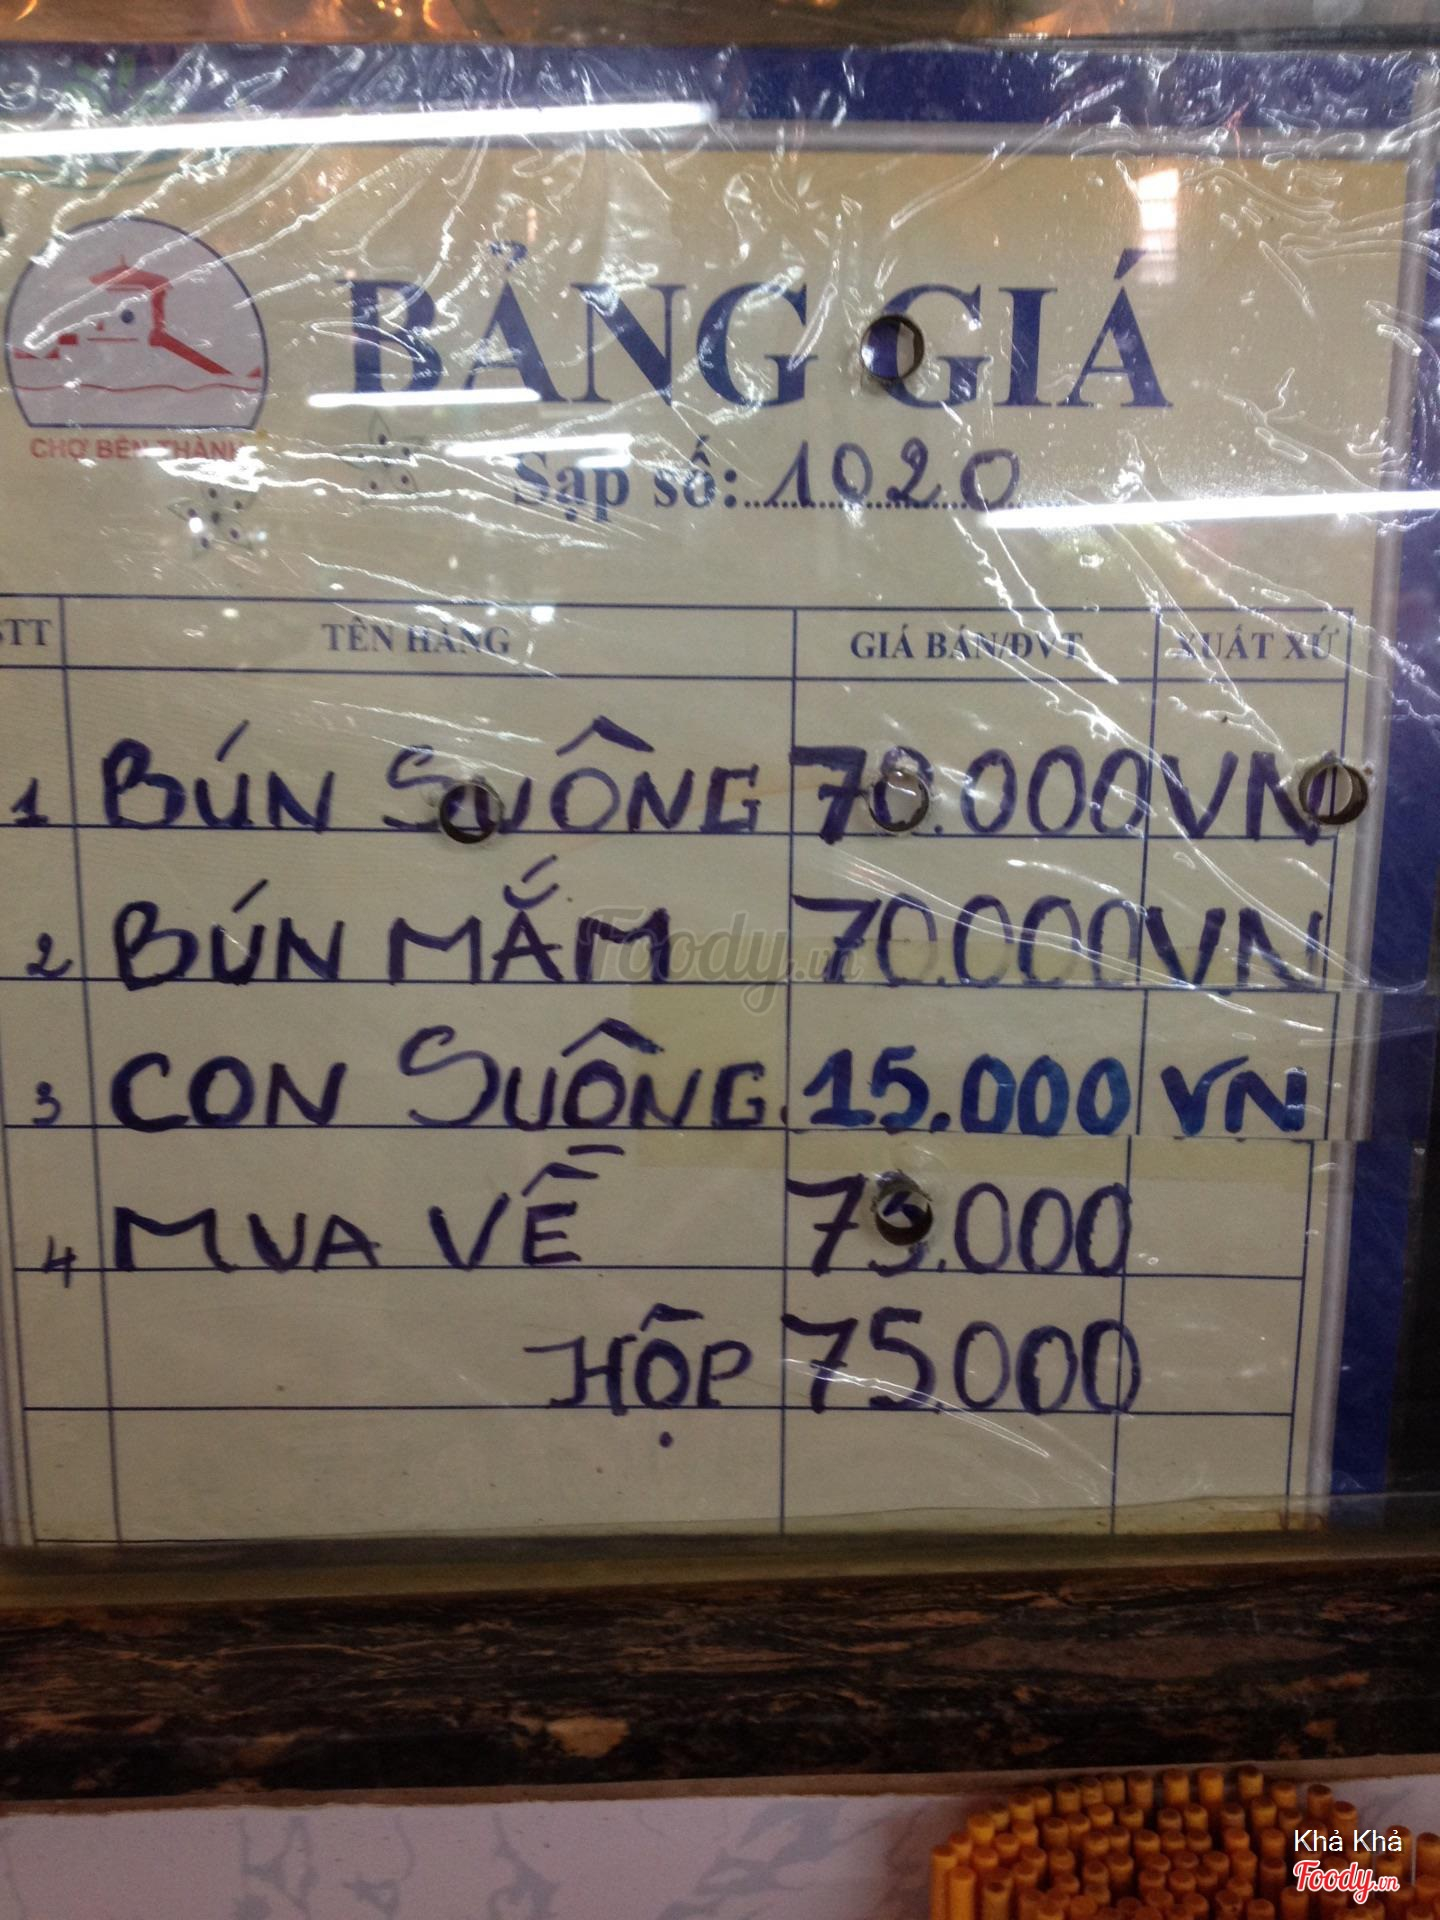 BẢNG GIÁ
CHỢ BẾN THÀNH
Sạp số: 1020
STT TÊN HÀNG GIÁ BÁN/ĐVT XUẤT XỨ
1 BÚN SUÔNG 70.000 VN
2 BÚN MẮM 70.000 VN
3 CON SUÔNG 15.000 VN
4 MUA VỀ 75.000
HỘP 75.000
Foody.vn
Khả Khả
Foody.vn